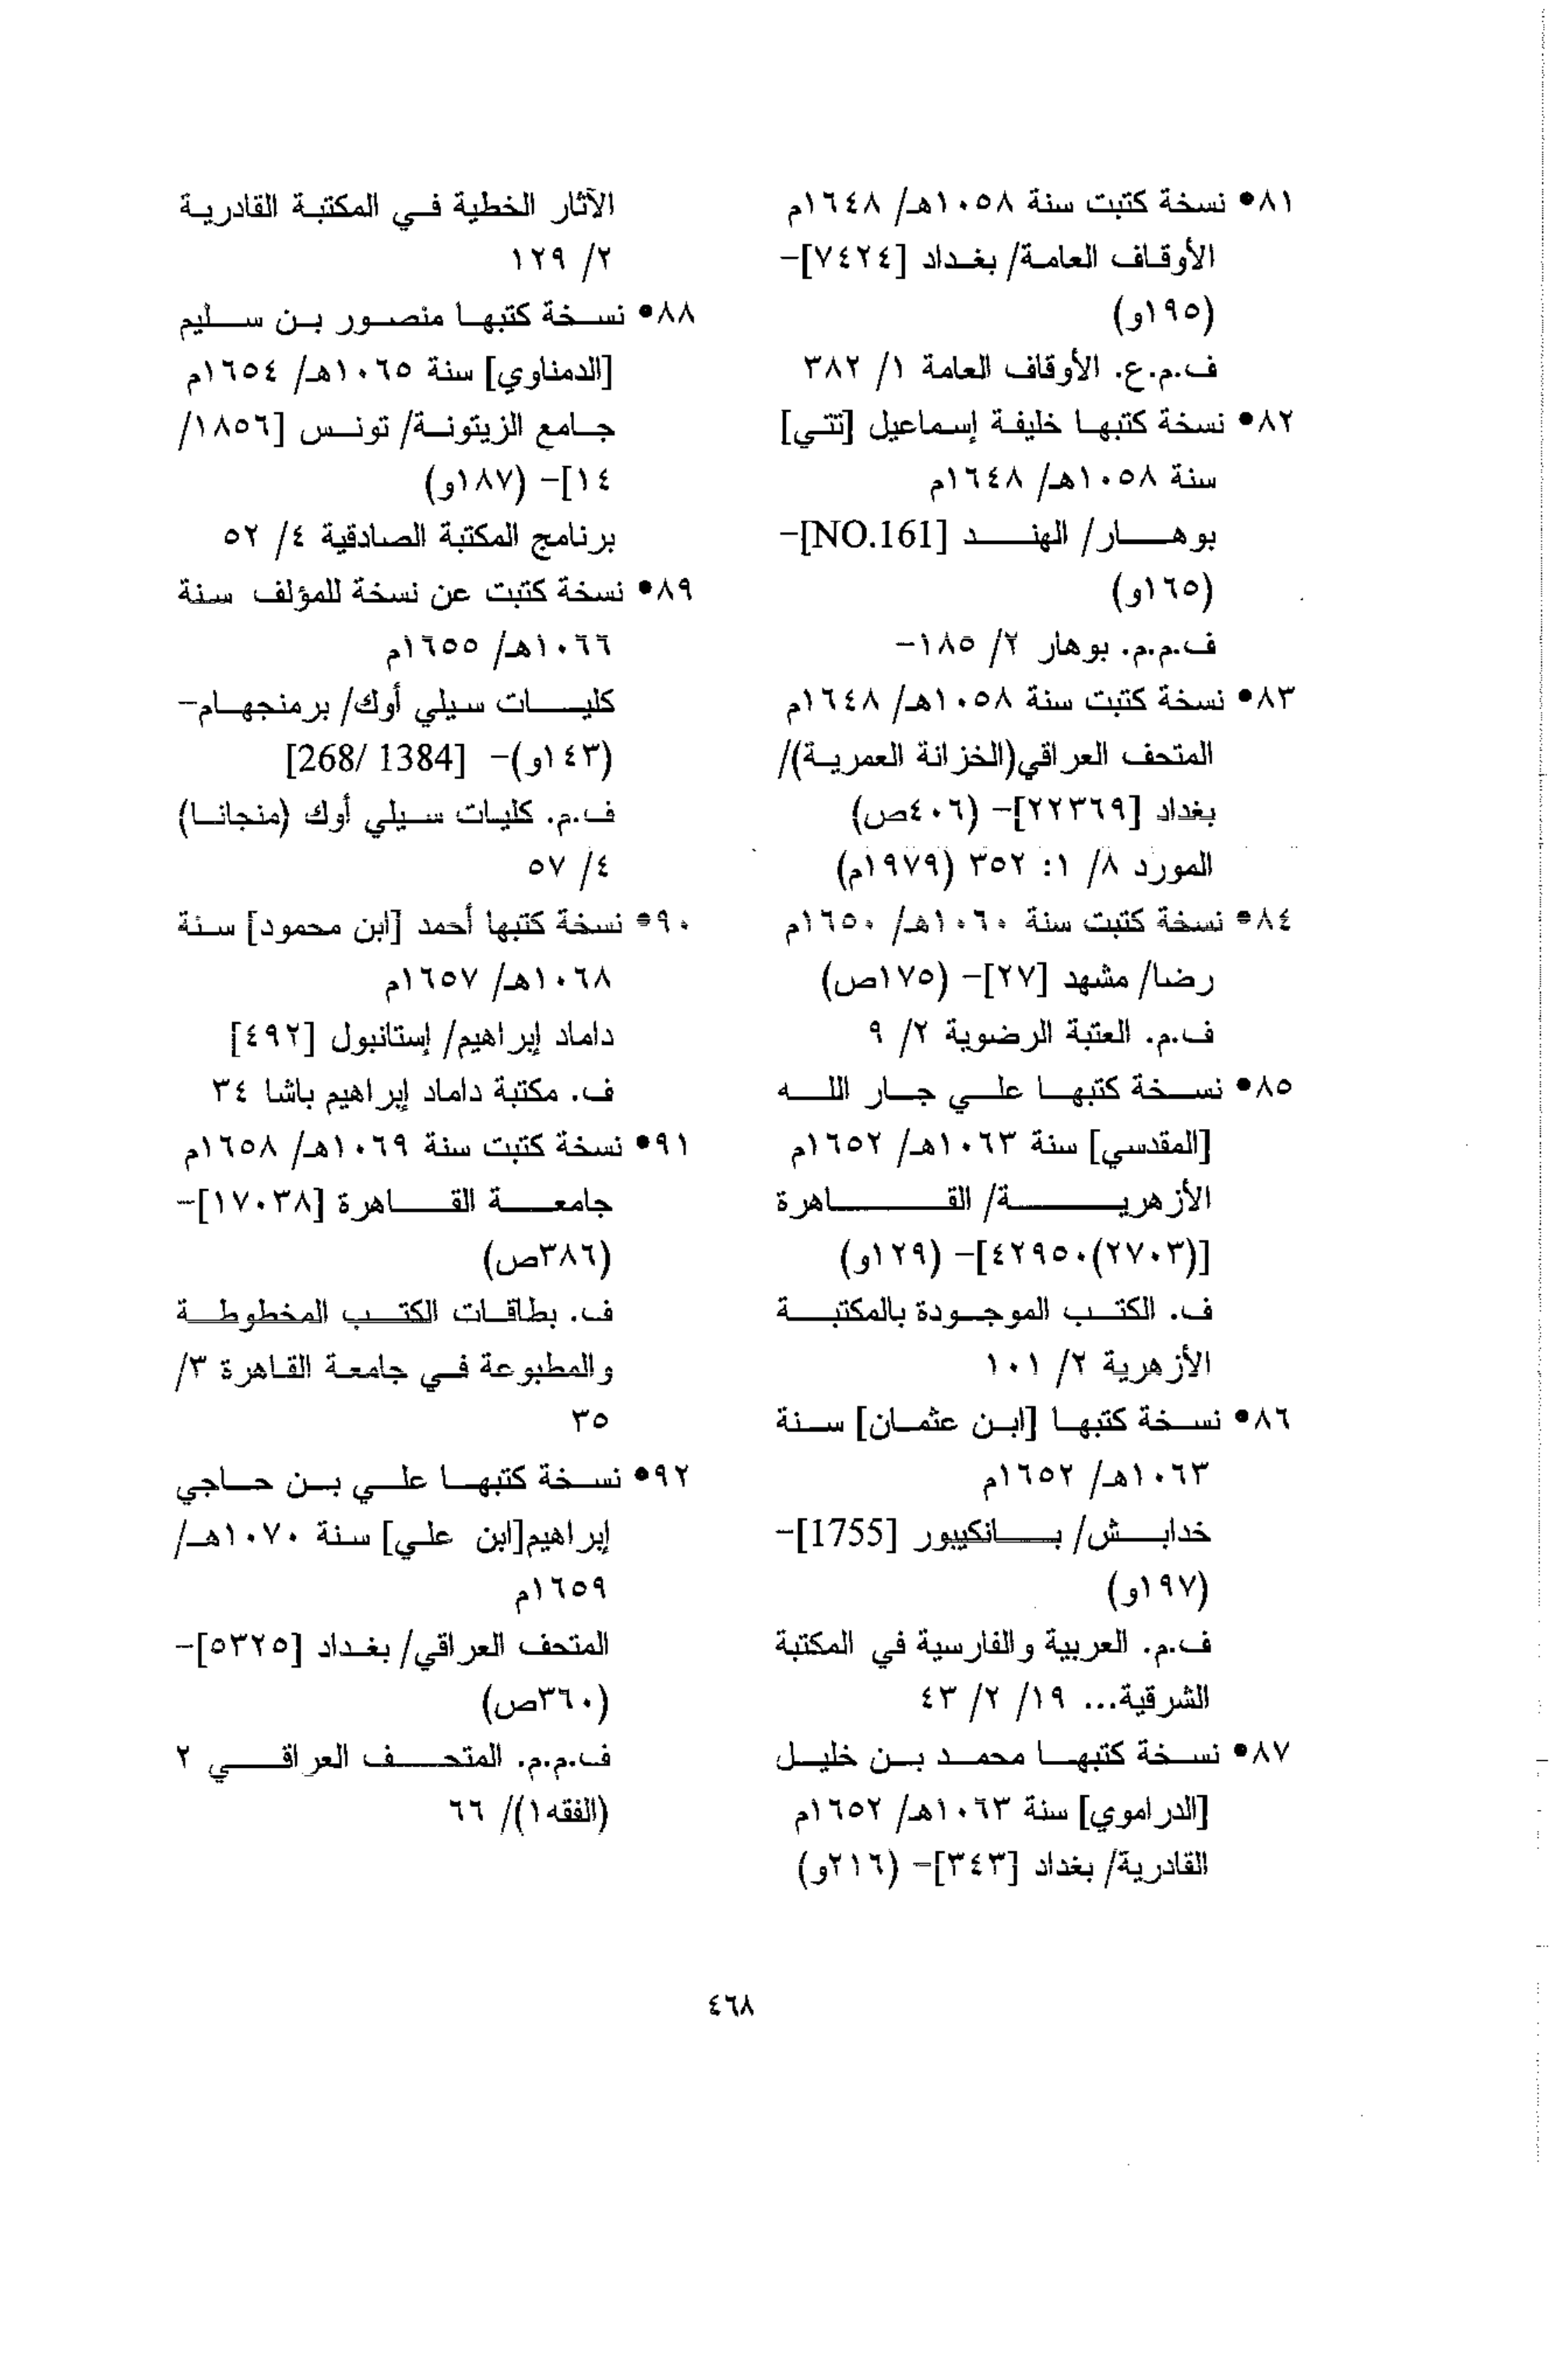 ٨١• نسخة كتبت سنة ١٠٥٨هـ/ ١٦٤٨م
الأوقاف العامة/ بغداد [٧٤٢٤]-
(١٩٥و)
ف.م.ع. الأوقاف العامة ١/ ٣٨٢
٨٢• نسخة كتبها خليفة إسماعيل [تتي]
سنة ١٠٥٨هـ/ ١٦٤٨م
بوهار/ الهند [NO.161]-
(١٦٥و)
ف.م.م. بوهار ٢/ ١٨٥-
٨٣• نسخة كتبت سنة ١٠٥٨هـ/ ١٦٤٨م
المتحف العراقي(الخزانة العمرية)/
بغداد [٢٢٣٦٩]- (٤٠٦ص)
المورد ٨/ ١: ٣٥٢ (١٩٧٩م)
٨٤• نسخة كتبت سنة ١٠٦٠هـ/ ١٦٥٠م
رضا/ مشهد [٢٧]- (١٧٥ص)
ف.م. العتبة الرضوية ٢/ ٩
٨٥• نسخة كتبها علي جار الله
[المقدسي] سنة ١٠٦٣هـ/ ١٦٥٢م
الأزهرية/ القاهرة
[(٢٧٠٣)٤٢٩٥٠]- (١٢٩و)
ف. الكتب الموجودة بالمكتبة
الأزهرية ٢/ ١٠١
٨٦• نسخة كتبها [ابن عثمان] سنة
١٠٦٣هـ/ ١٦٥٢م
خدابش/ بانكيبور [1755]-
(١٩٧و)
ف.م. العربية والفارسية في المكتبة
الشرقية... ١٩/ ٢/ ٤٣
٨٧• نسخة كتبها محمد بن خليل
[الدراموي] سنة ١٠٦٣هـ/ ١٦٥٢م
القادرية/ بغداد [٣٤٣]- (٢١٦و)
الآثار الخطية في المكتبة القادرية
٢/ ١٢٩
٨٨• نسخة كتبها منصور بن سليم
[الدمناوي] سنة ١٠٦٥هـ/ ١٦٥٤م
جامع الزيتونة/ تونس [١٨٥٦/
١٤]- (١٨٧و)
برنامج المكتبة الصادقية ٤/ ٥٢
٨٩• نسخة كتبت عن نسخة للمؤلف سنة
١٠٦٦هـ/ ١٦٥٥م
كليات سيلي أوك/ برمنجهام-
(١٤٣و)- [268/ 1384]
ف.م. كليات سيلي أوك (منجانا)
٤/ ٥٧
٩٠• نسخة كتبها أحمد [ابن محمود] سنة
١٠٦٨هـ/ ١٦٥٧م
داماد إبراهيم/ إستانبول [٤٩٢]
ف. مكتبة داماد إبراهيم باشا ٣٤
٩١• نسخة كتبت سنة ١٠٦٩هـ/ ١٦٥٨م
جامعة القاهرة [١٧٠٣٨]-
(٣٨٦ص)
ف. بطاقات الكتب المخطوطة
والمطبوعة في جامعة القاهرة ٣/
٣٥
٩٢• نسخة كتبها علي بن حاجي
إبراهيم[ابن علي] سنة ١٠٧٠هـ/
١٦٥٩م
المتحف العراقي/ بغداد [٥٣٢٥]-
(٣٦٠ص)
ف.م.م. المتحف العراقي ٢
(الفقه١)/ ٦٦
٤٦٨